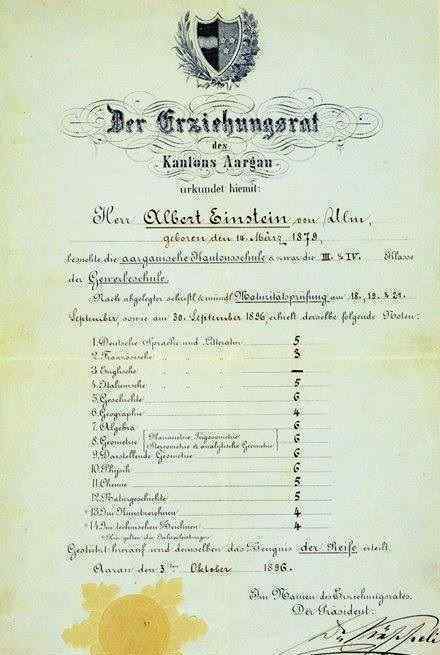 Der Erziehungsrat
des
Kantons Aargau
urkundet hiemit:
Herr Albert Einstein von Ulm,
geboren den 14. März, 1879,
besuchte die aargauische Kantonsschule & zwar die III. & IV. Klasse
der Gewerbeschule.
Nach abgelegter schriftl. & mündl. Maturitätsprüfung am 18., 19. & 21.
September, sowie am 30. September 1896, erhielt derselbe folgende Noten:
1. Deutsche Sprache und Litteratur 5
2. Französische " " " 3
3. Englische " " " —
4. Italienische " " " 5
5. Geschichte 6
6. Geographie 4
7. Algebra 6
8. Geometrie (Planimetrie, Trigonometrie, 6
Stereometrie & analytische Geometrie)
9. Darstellende Geometrie 6
10. Physik 6
11. Chemie 5
12. Naturgeschichte 5
*13. Im Kunstzeichnen 4
*14. Im technischen Zeichnen 4
* Hier gelten die Jahresleistungen.
Gestützt hierauf wird demselben das Zeugnis der Reife erteilt.
Aarau den 3ten Oktober 1896.
Im Namen des Erziehungsrates,
Der Präsident: